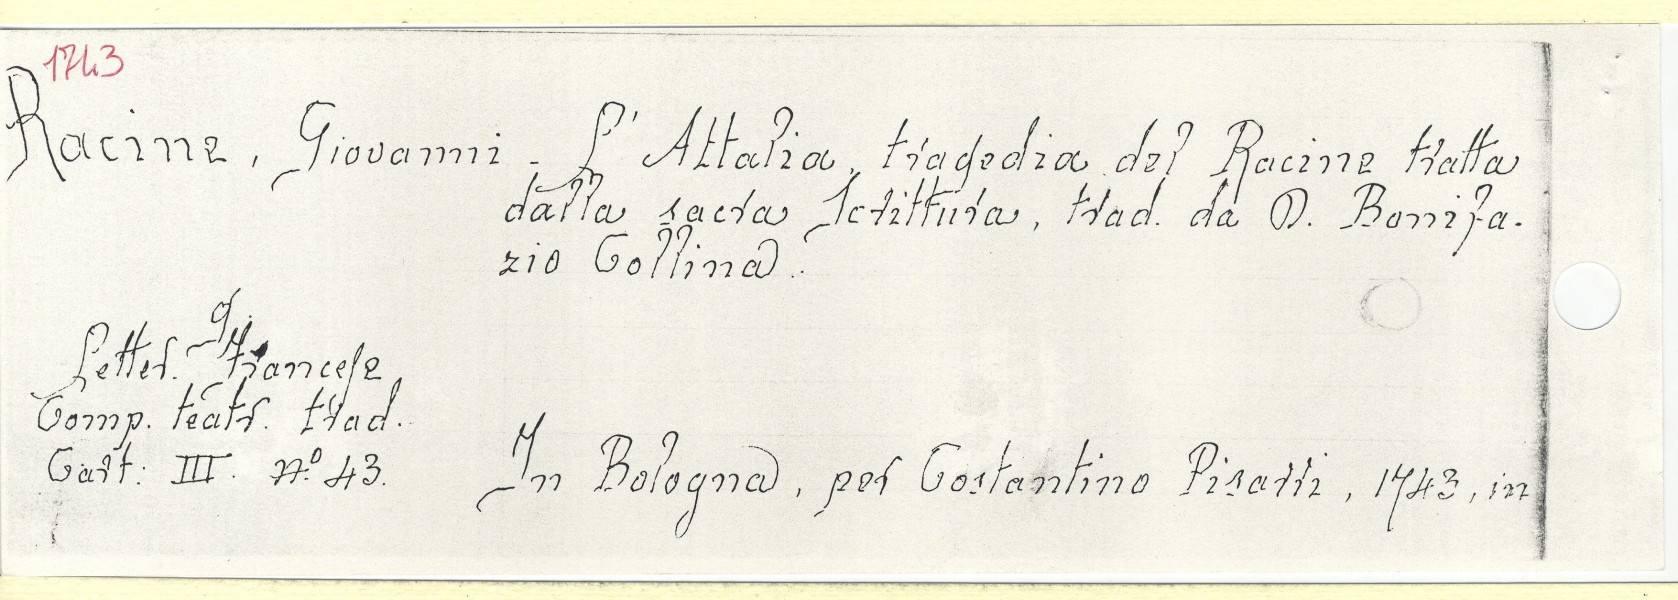 1743
Racine, Giovanni - L'Attalia, tragedia del Racine tratta
dalla sacra Scrittura, trad. da D. Bonifa-
zio Collina.
Letter. francese
Comp. teatr. trad.
Cart: III. n.º 43.
In Bologna, per Costantino Pisarri, 1743, in